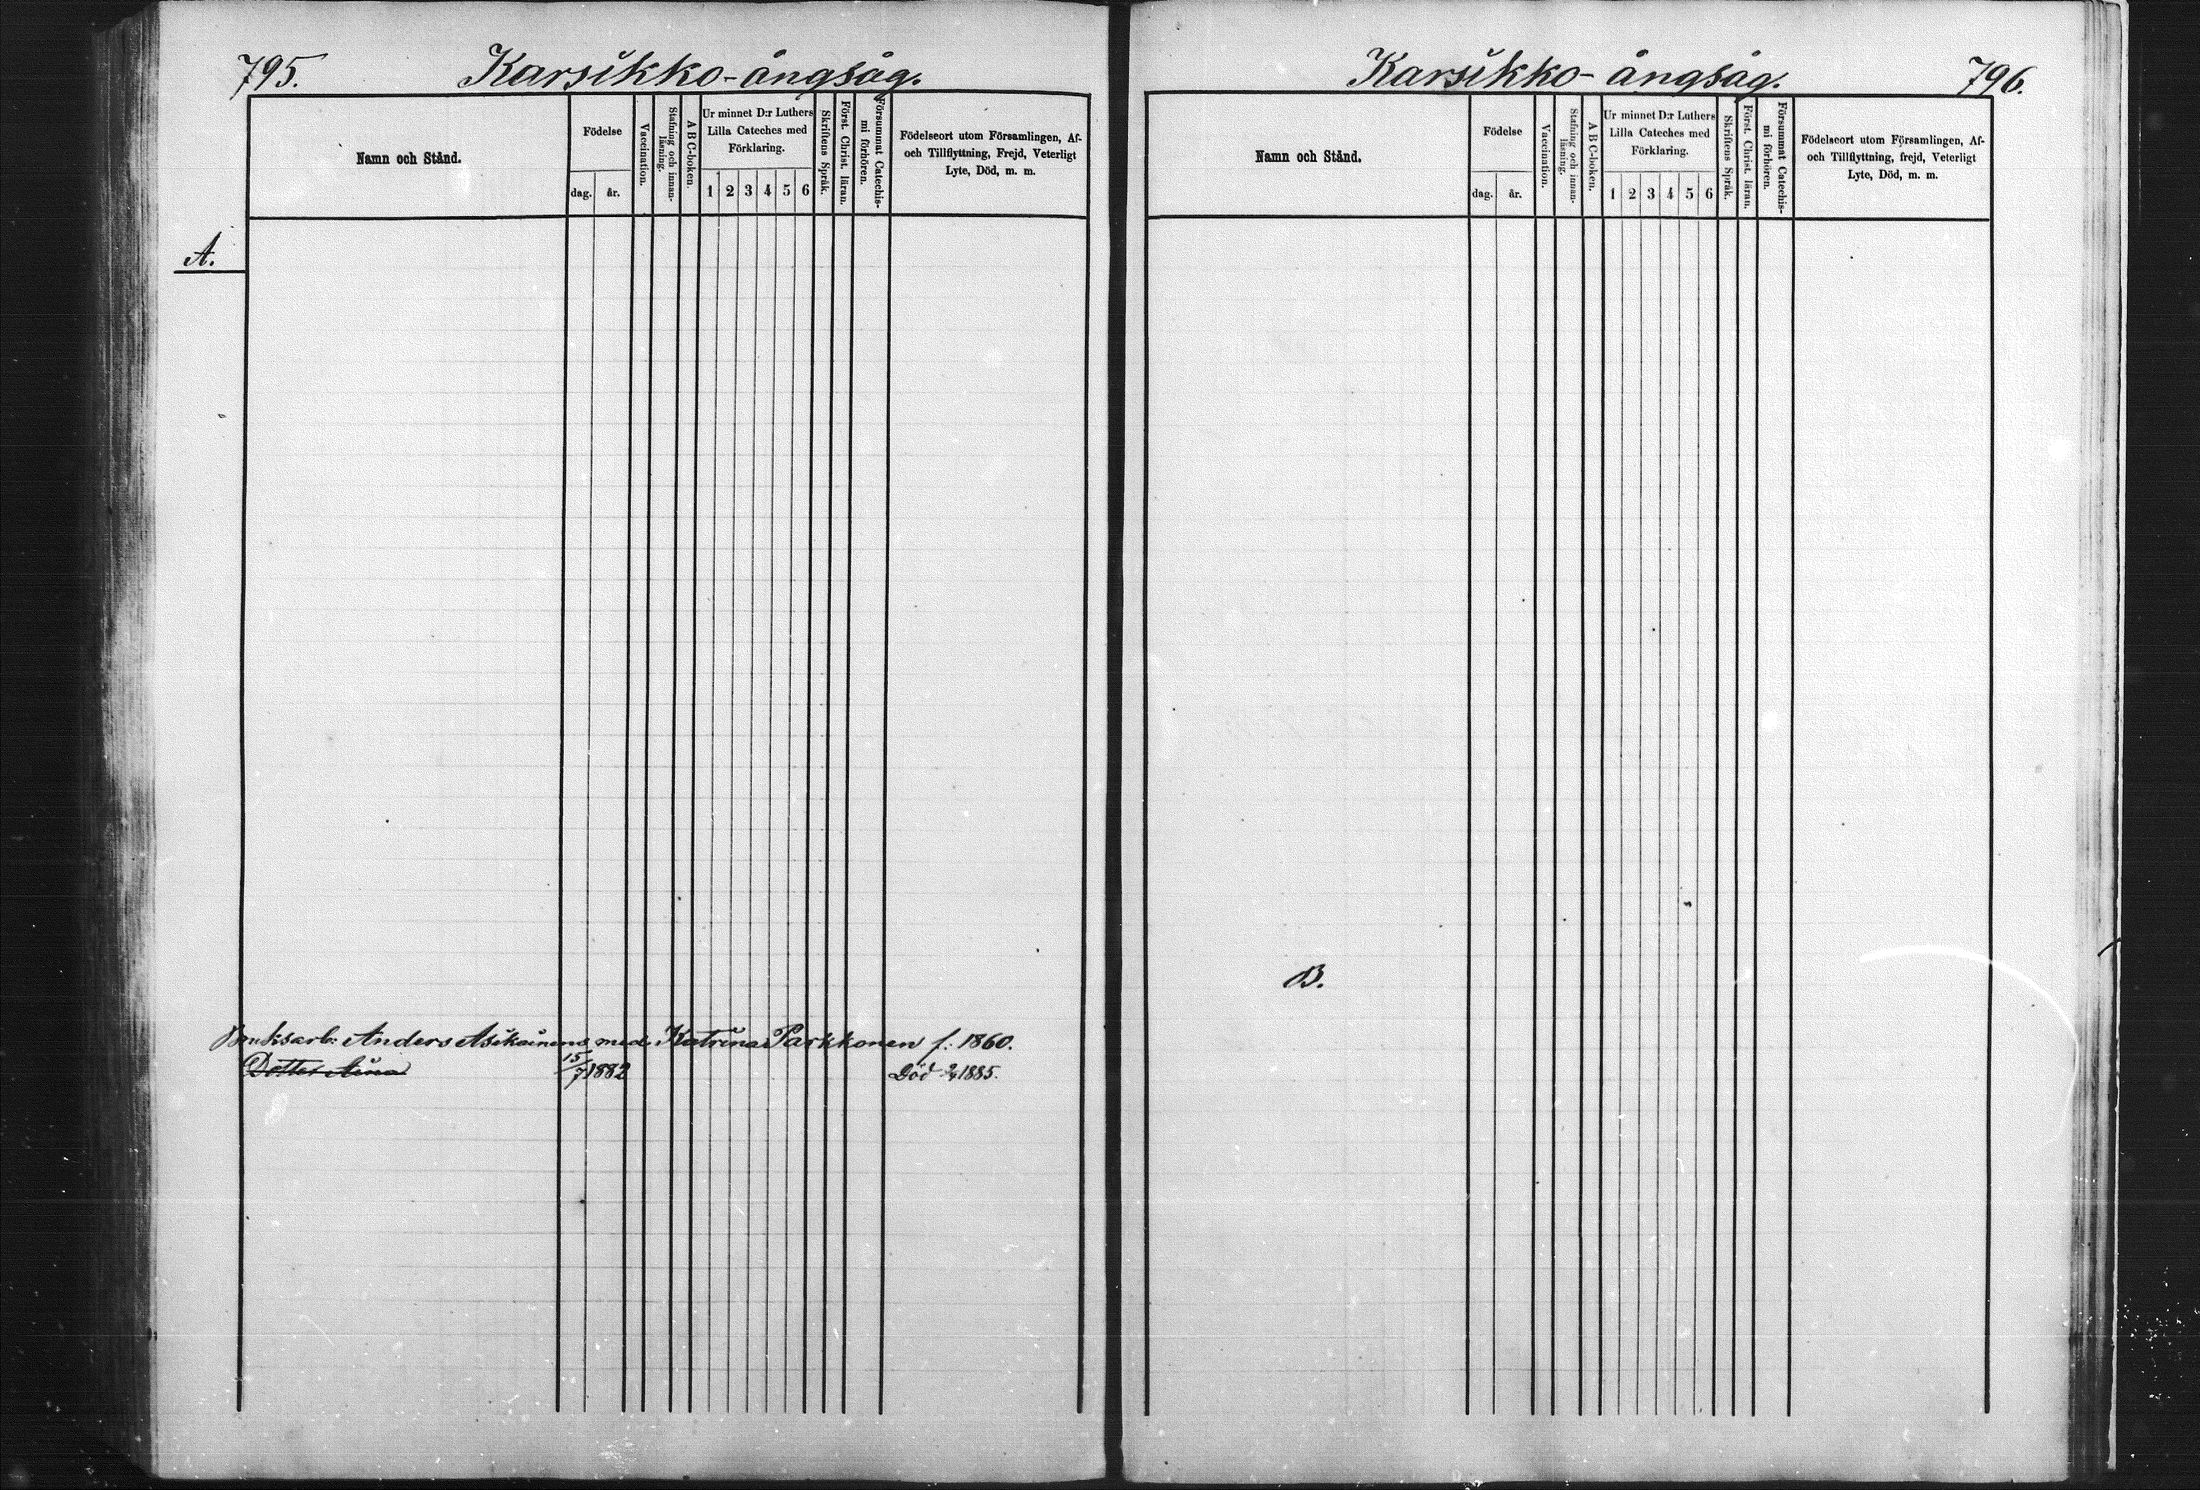 795. Karsikko-ångsåg.
Namn och Stånd.
Födelse
dag. år.
Vaccination.
Stafning och innan-
läsning.
A B C-boken.
Ur minnet D:r Luthers
Lilla Cateches med
Förklaring.
1 2 3 4 5 6
Skriftens Språk.
Först. Christ. läran.
Försummat Catechis-
mi förhören.
Födelseort utom Församlingen, Af-
och Tillflyttning, Frejd, Veterligt
Lyte, Död, m. m.
A.
Bruksarb: Anders Asikainens med Katrina Parkkonen f. 1860.
Dotter Aina 15/7 1882 Död 1885.
Karsikko-ångsåg. 796.
Namn och Stånd.
Födelse
dag. år.
Vaccination.
Stafning och innan-
läsning.
A B C-boken.
Ur minnet D:r Luthers
Lilla Cateches med
Förklaring.
1 2 3 4 5 6
Skriftens Språk.
Först. Christ. läran.
Försummat Catechis-
mi förhören.
Födelseort utom Församlingen, Af-
och Tillflyttning, frejd, Veterligt
Lyte, Död, m. m.
B.